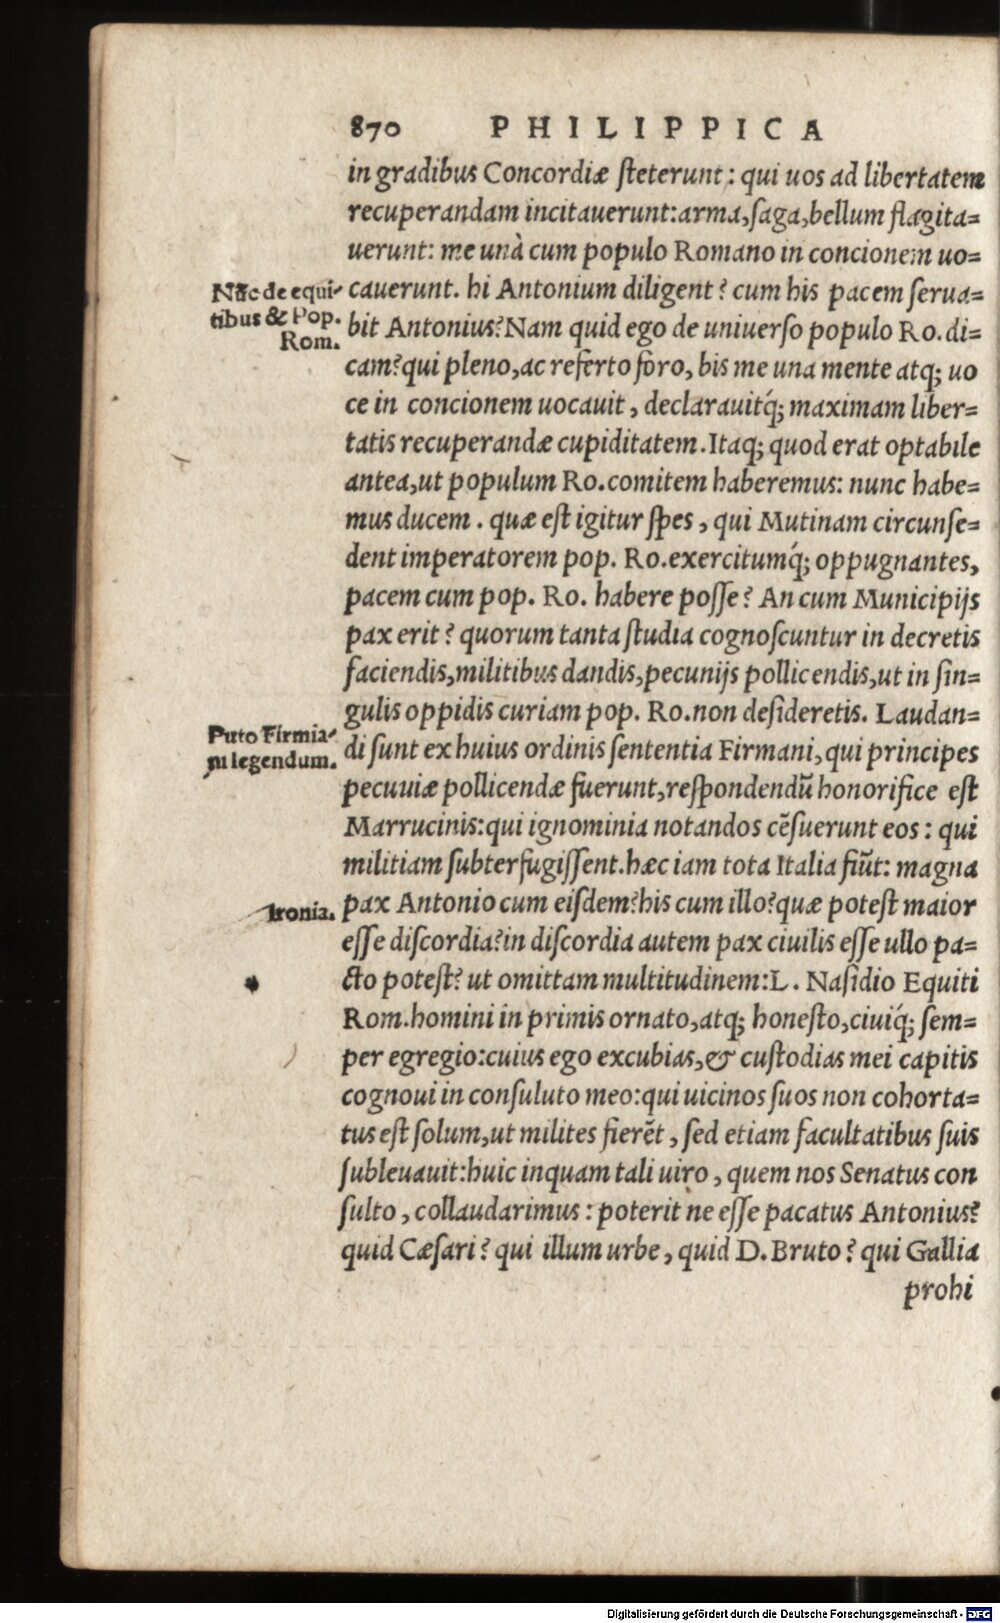 870 PHILIPPICA
in gradibus Concordiæ ſteterunt: qui uos ad libertatem
recuperandam incitauerunt:arma,ſaga,bellum flagita=
uerunt: me unà cum populo Romano in concionem uo=
Nũc de equi-
tibus & Pop.
Rom.
cauerunt. hi Antonium diligent? cum his pacem ſerua=
bit Antonius?Nam quid ego de uniuerſo populo Ro.di=
cam?qui pleno,ac referto foro, bis me una mente atq; uo
ce in concionem uocauit, declarauitq́; maximam liber=
tatis recuperandæ cupiditatem.Itaq; quod erat optabile
antea,ut populum Ro.comitem haberemus: nunc habe=
mus ducem. quæ eſt igitur ſpes, qui Mutinam circunſe=
dent imperatorem pop. Ro.exercitumq́; oppugnantes,
pacem cum pop. Ro. habere poſſe? An cum Municipijs
pax erit? quorum tanta ſtudia cognoſcuntur in decretis
faciendis,militibus dandis,pecunijs pollicendis,ut in ſin=
gulis oppidis curiam pop. Ro.non deſideretis. Laudan=
Puto Firmia-
ni legendum.
di ſunt ex huius ordinis ſententia Firmani,qui principes
pecuuiæ pollicendæ fuerunt,reſpondendũ honorifice eſt
Marrucinis:qui ignominia notandos cẽſuerunt eos: qui
militiam ſubterfugiſſent.hæc iam tota Italia fiũt: magna
Ironia.
pax Antonio cum eiſdem?his cum illo?quæ poteſt maior
eſſe diſcordia?in diſcordia autem pax ciuilis eſſe ullo pa=
cto poteſt? ut omittam multitudinem:L. Naſidio Equiti
Rom.homini in primis ornato,atq; honeſto,ciuiq́; ſem=
per egregio:cuius ego excubias,& cuſtodias mei capitis
cognoui in conſuluto meo:qui uicinos ſuos non cohorta=
tus eſt ſolum,ut milites fierẽt, ſed etiam facultatibus ſuis
ſubleuauit:huic inquam tali uiro, quem nos Senatus con
ſulto, collaudarimus: poterit ne eſſe pacatus Antonius?
quid Cæſari? qui illum urbe, quid D.Bruto? qui Gallia
prohi
Digitalisierung gefördert durch die Deutsche Forschungsgemeinschaft - DFG